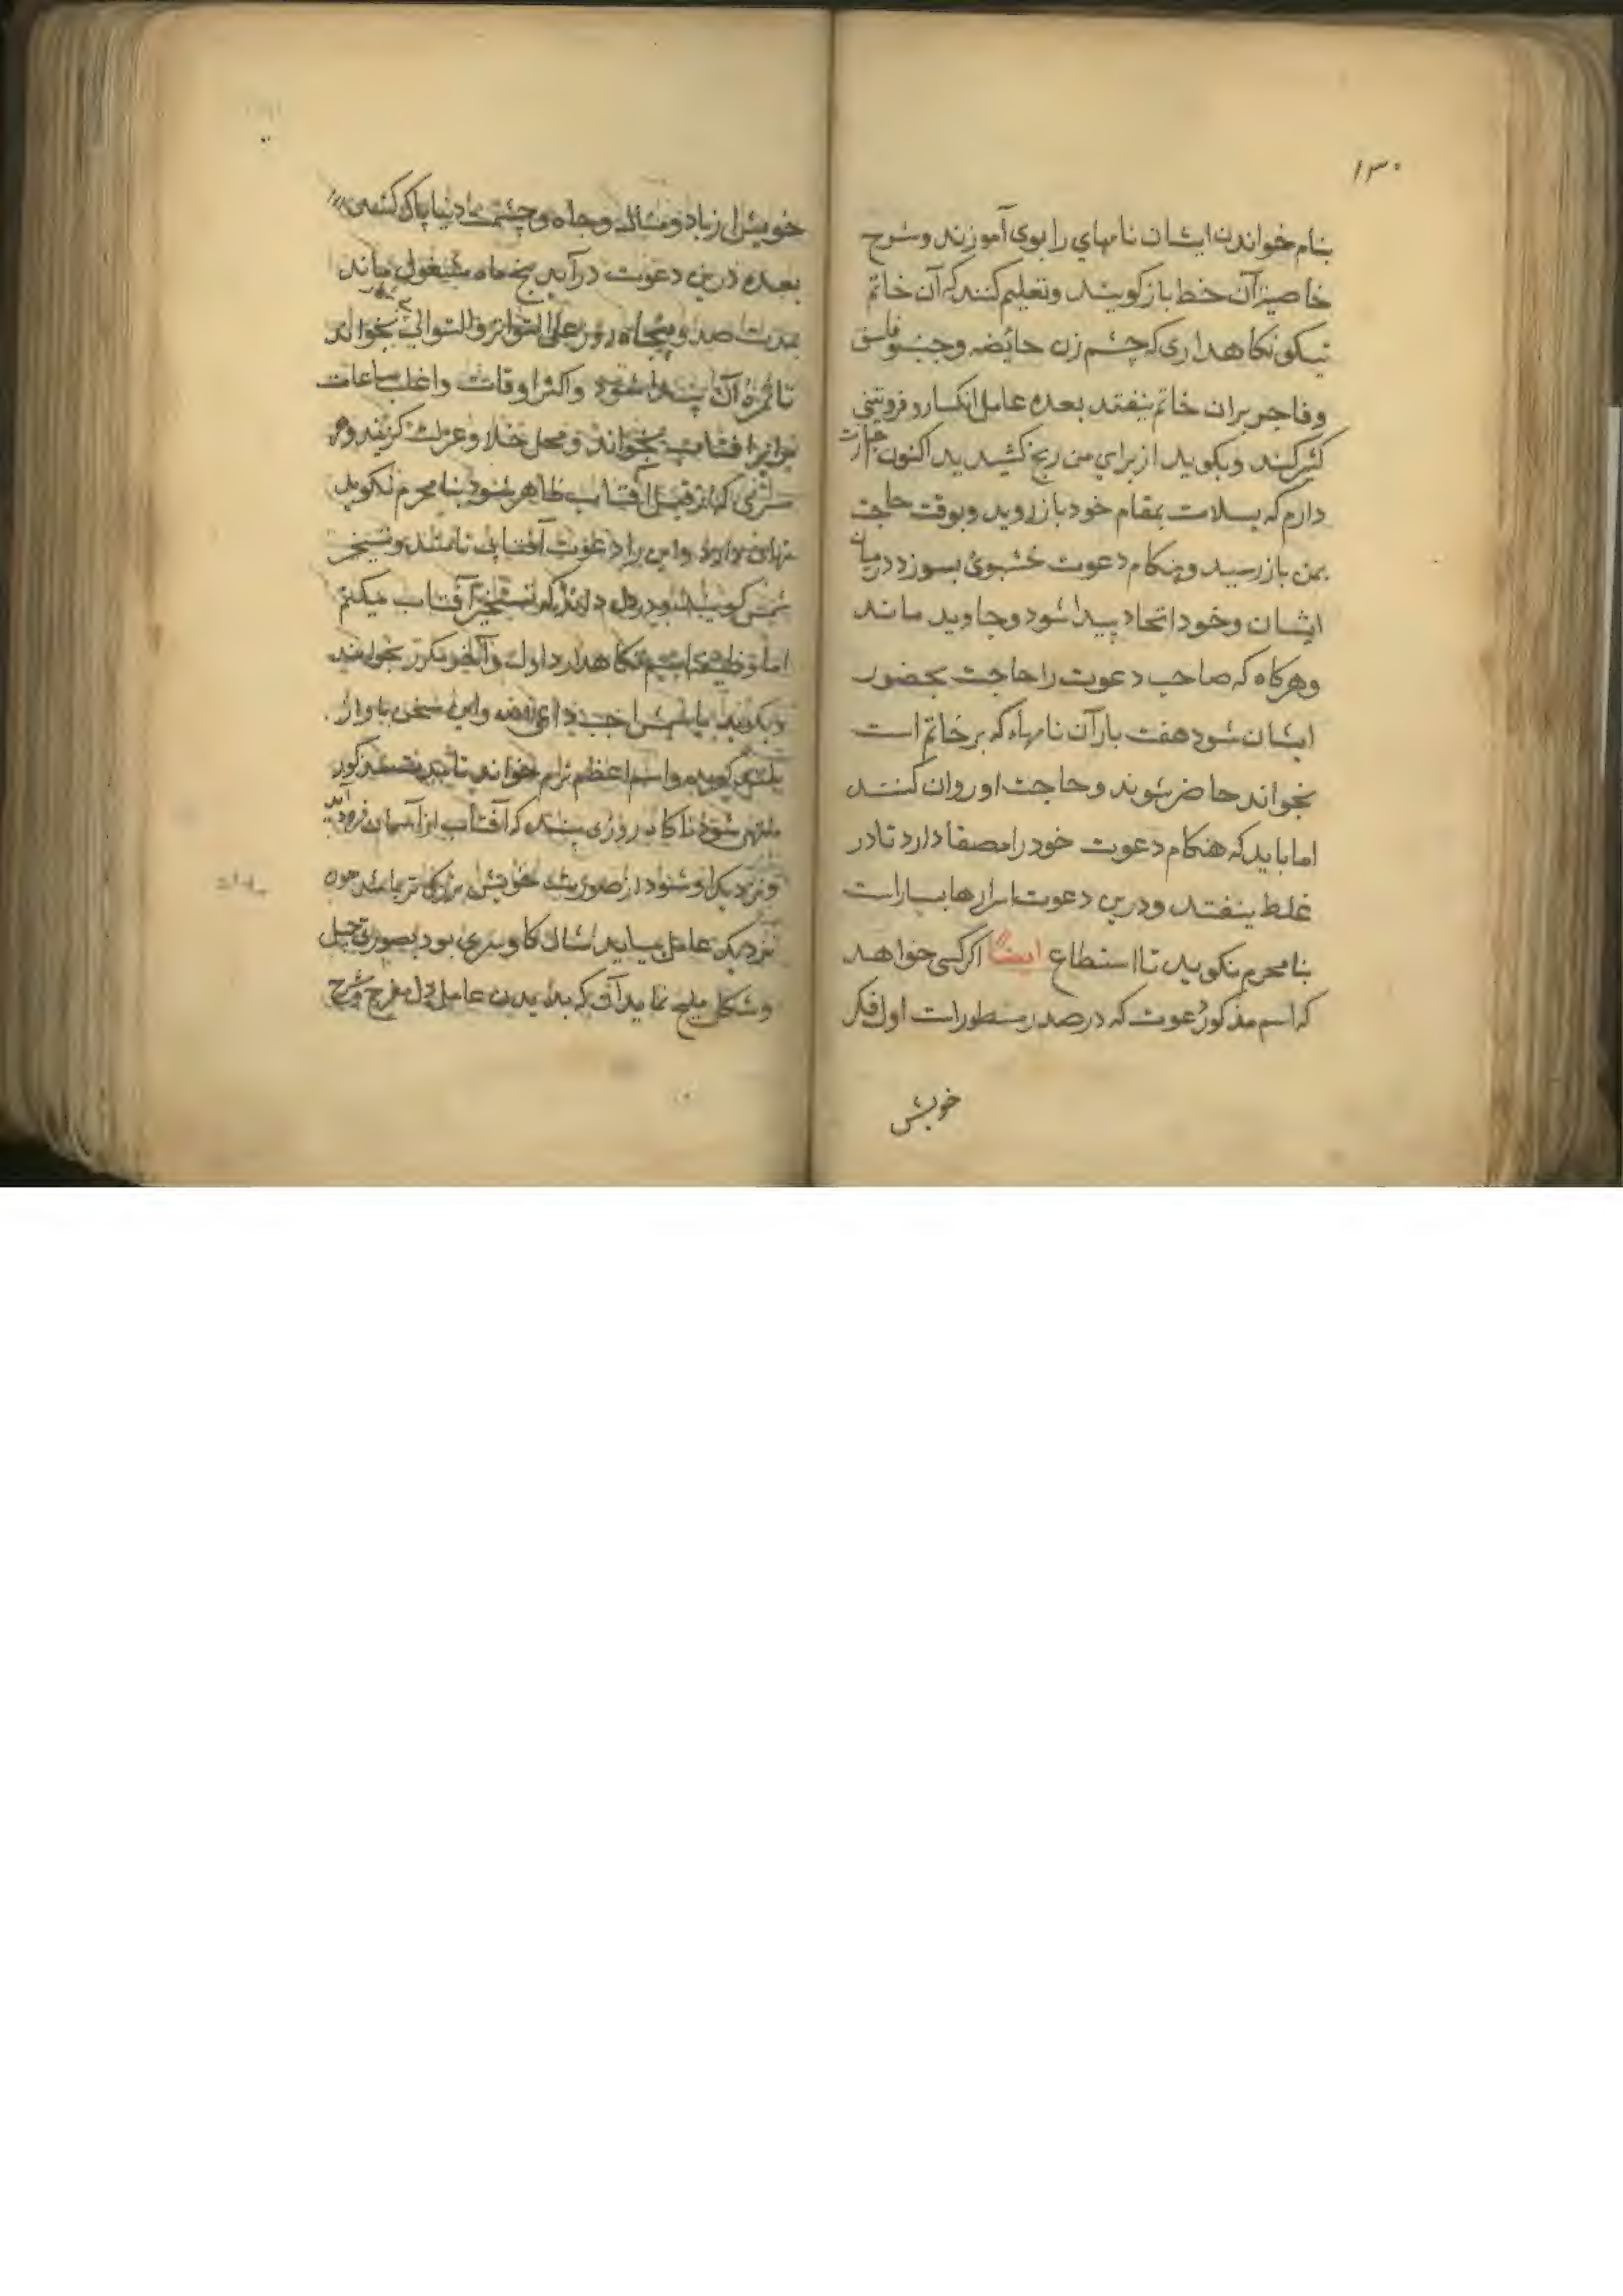 ۱۳۰
بنام خواندن ایشان نامهای را بوی آموزند و شرح
خاصیت آن خط باز کویند و تعلیم کنند که آن خاتم
نیکو نکاهداری که چشم زن حائضه و جنب و فاسق
و فاجر بران خاتم نیفتد بعده عامل انکسار و فروتنی
کند و بکوید از برای من رنج کشیدید اکنون
دارم که بسلامت بمقام خود باز روید و بوقت حاجت
بمن باز رسید و هنکام دعوت خشبوئ بسوزد درمیان
ایشان و خود اتحاد پیدا شود و جاوید ماند
و هرکاه که صاحب دعوت را حاجت بحضور
ایشان شود هفت بار آن نامهاء که بر خاتم است
بخواند حاضر شوند و حاجت او روان کنند
اما باید که هنکام دعوت خود را مصفا دارد تا در
غلط نیفتد و درین دعوت اسرارها بسیار است
بنامحرم نکوید تا استطاع ایضا اکر کسی خواهد
که اسم مذکور دعوت که در صدر مسطور است اول فکر
خویش
خویش از زیاد و مال و جاه و چشم دنیا پاک کند
بعده درین دعوت در آید پنج ماه مشغول ماند
مدت صد و پنجاه روز علی التواتر و التوالی بخواند
تا ثمرهٔ آن پیدا شود و اکثر اوقات و اغلب ساعات
برابر افتاب بخواند و محل خلا و عزلت کزیند و هر
سری که از قبل آفتاب ظاهر شود بنامحرم نکوید
نهان دارد و این را دعوت آفتاب نامند و تسخیر
شمس کویند و در دل داند که تسخیر آفتاب میکنم
اما وظیفه نکاهدارد اول و آخر بخواند
و بکوید یا شمس اجب داعی الله و این سخن باواز
بلند کوید و اسم اعظم نرم خواند تا مدت مذکور
منتهی شود ناکاه روزی بیند که آفتاب از آسمان فرود آید
و نزدیک او شود از صورت خویش بزرک تر نماید چون
نزدیک عامل بیاید مثال کاو سری بود بصورت جمیل
و شکل ملیح نماید آن که بدیدن عامل دل مفرح و شرح